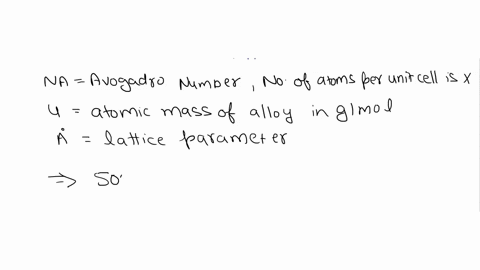 NA = Avogadro Number, No. of atoms per unit cell is x
U = atomic mass of alloy in g/mol
Å = lattice parameter
⇒ SO